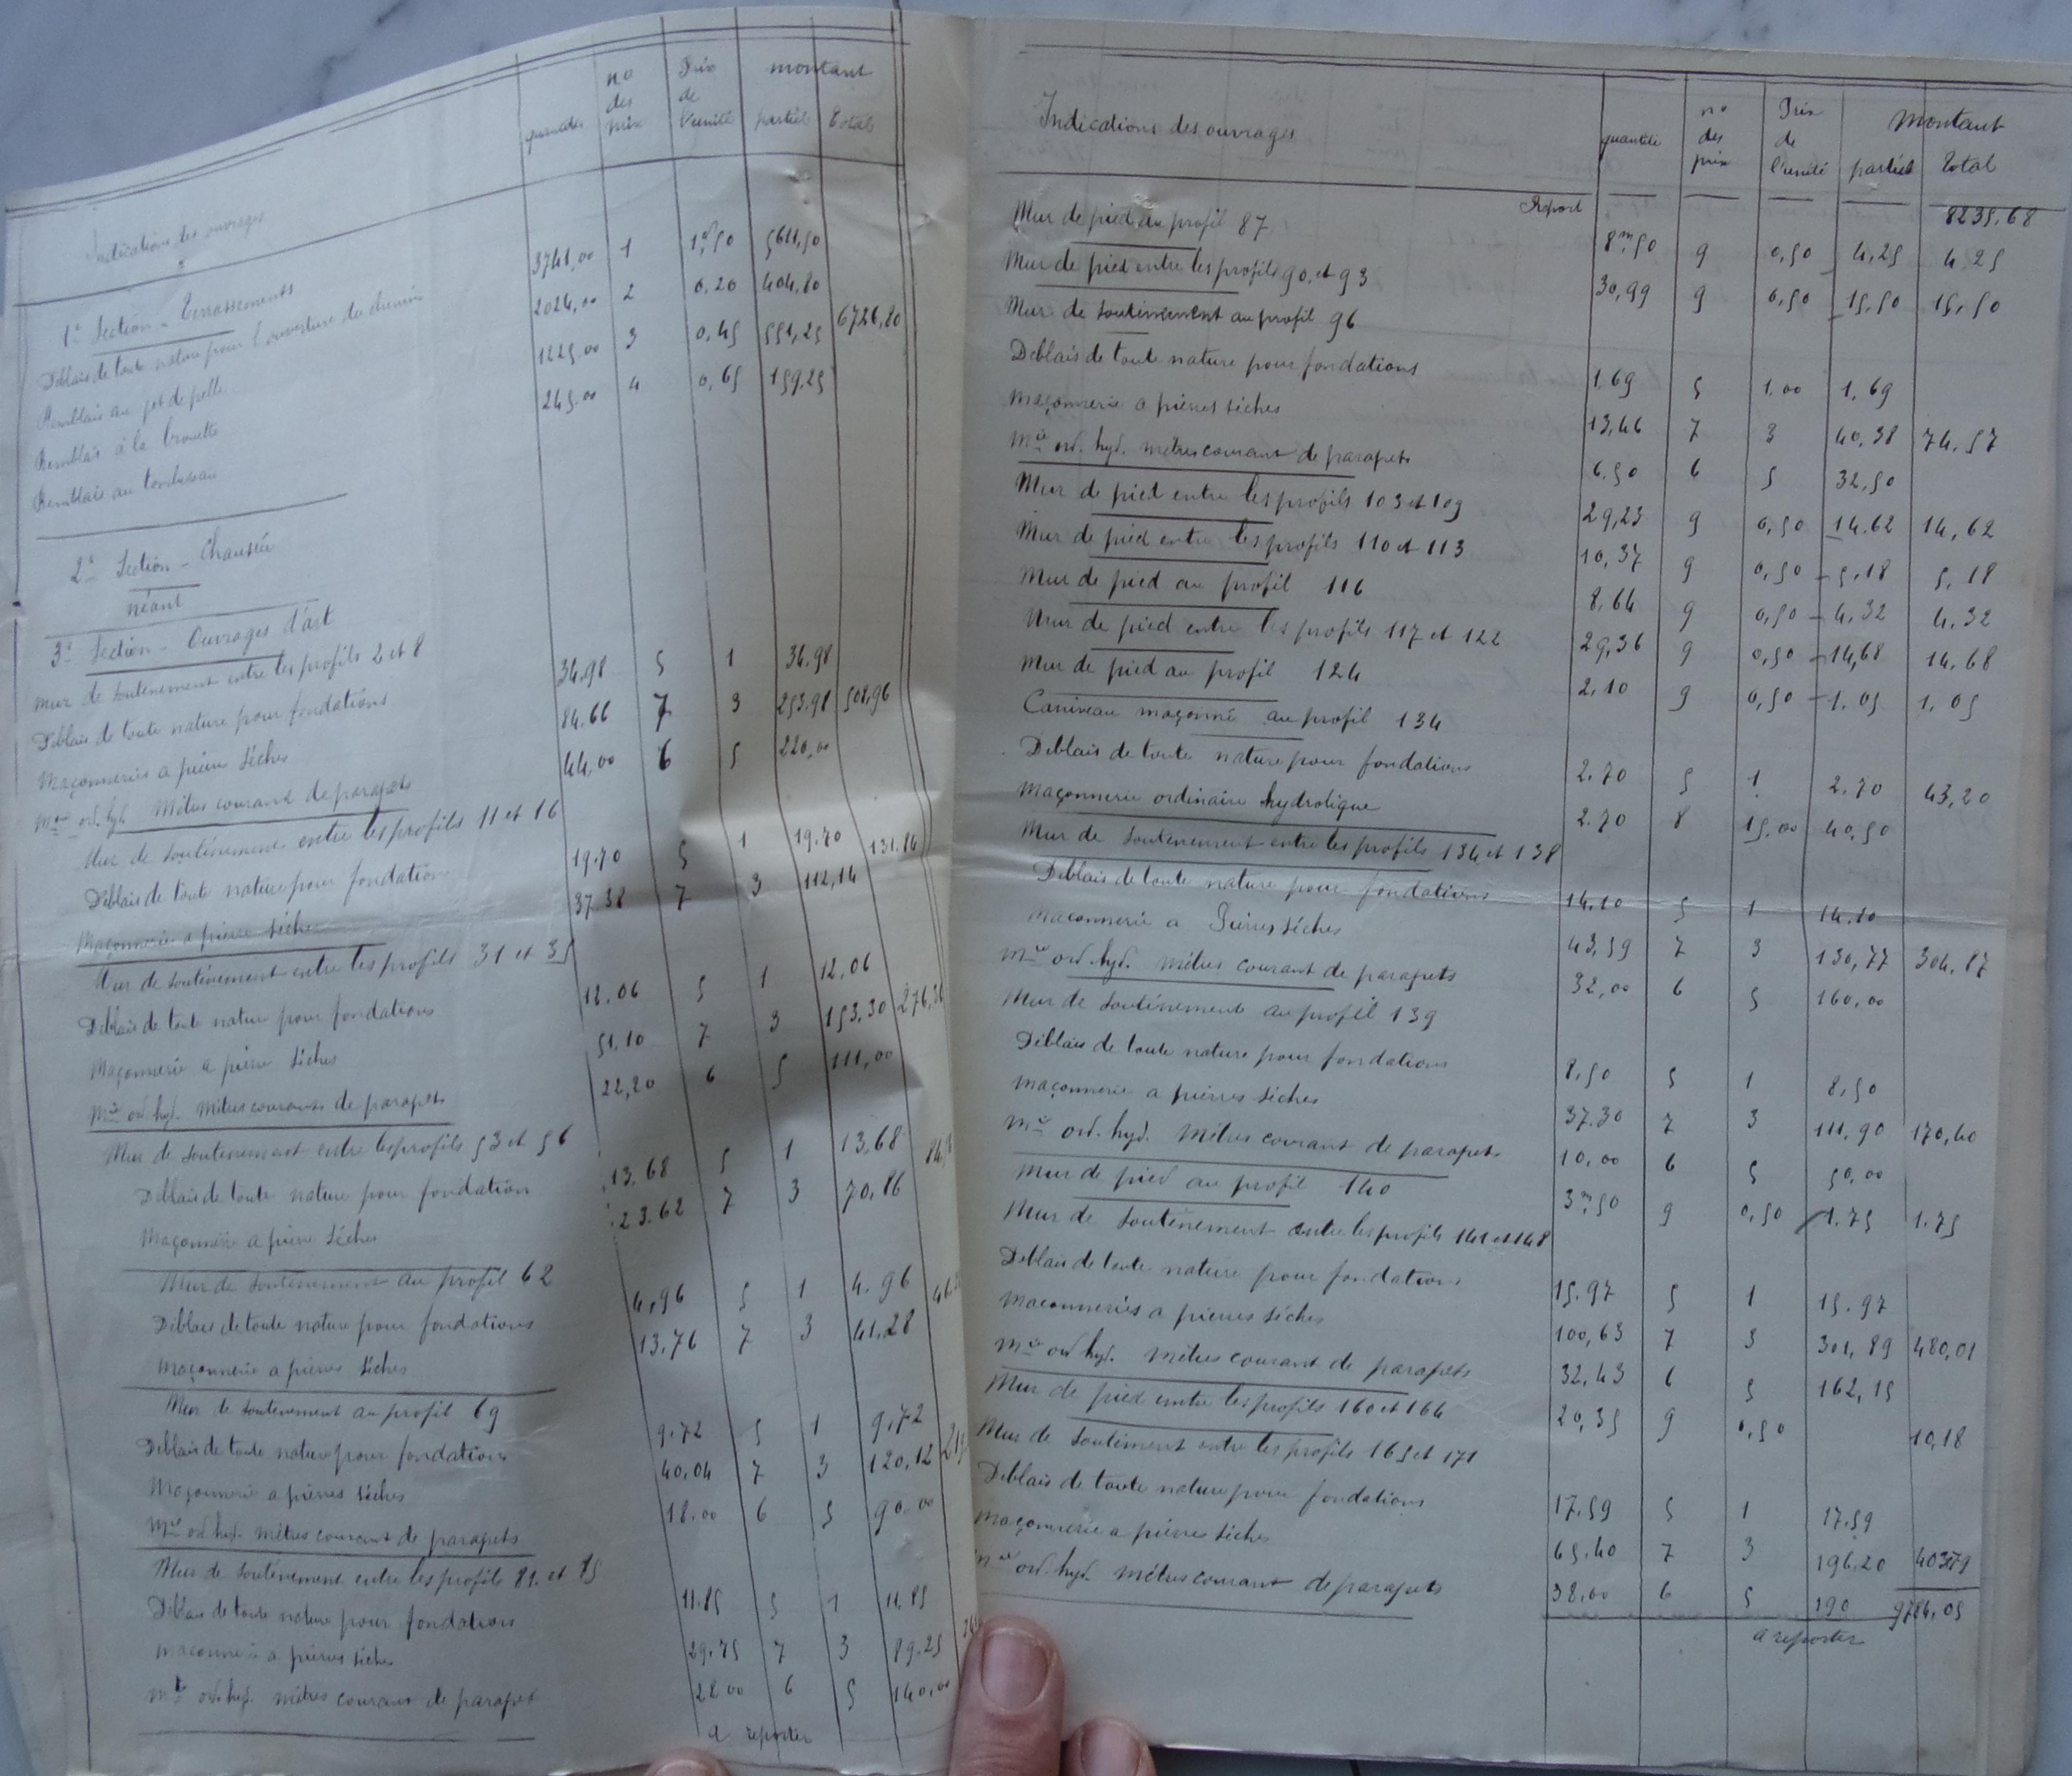 Indications des ouvrages
quantités
no des prix
Prix de l'unité
montant
partiel totale
1e Section - Terrassements
Déblais de toute nature pour l'ouverture du chemin 3741,00 1 1f,50 5611,50
Remblais au jet de pelle 2024,00 2 0,20 404,80
Remblais à la brouette 1225,00 3 0,45 551,25 6726,80
Remblais au tombereau 245,00 4 0,65 159,25
2e Section - Chaussée
néant
3e Section - Ouvrages d'art
Mur de soutènement entre les profils 2 et 8
Déblais de toute nature pour fondations 34,98 5 1 34,98
Maçonneries a pierre sèches 84,66 7 3 253,98 508,96
Mie ord. hyd. Mètres courant de parapets 44,00 6 5 220,00
Mur de soutènement entre les profils 11 et 16
Déblais de toute nature pour fondations 19,70 5 1 19,70 131.84
Maçonnerie a pierre sèches 37.38 7 3 112,14
Mur de soutènement entre les profils 31 et 35
Déblais de toute nature pour fondations 12.06 5 1 12.06
Maçonnerie a pierre sèches 51,10 7 3 153,30
Mie ord. hyd. Mètres courants de parapets 22,20 6 5 111,00
Mur de soutènement entre les profils 53 et 56
Déblais de toute nature pour fondation 13.68 5 1 13,68
Maçonnerie a pierre sèches 23.62 7 3 70,86
Mur de soutènement au profil 62
Déblais de toute nature pour fondations 4,96 5 1 4.96
Maçonnerie a pierres sèches 13,76 7 3 41,28
Mur de soutènement au profil 69
Déblais de toute nature pour fondations 9,72 5 1 9,72
Maçonnerie a pierres sèches 40,04 7 3 120,12
Mie ord. hyd. mètres courant de parapets 18.00 6 5 90,00
Mur de soutènement entre les profils 81 et 85
Déblais de toute nature pour fondations 11.85 5 1 11,85
Maçonnerie a pierres sèches 29,75 7 3 89.25
Mie ord. hyd. mètres courant de parapet 28 00 6 5 140,00
a reporter
Indications des ouvrages
quantité
no des prix
Prix de l'unité
montant
partiel total
Report 8235,68
Mur de pied au profil 87 8m,50 9 0,50 4,25 4,25
Mur de pied entre les profils 90 et 93 30,99 9 0,50 15,50 15,50
Mur de soutènement au profil 96
Déblais de toute nature pour fondations 1,69 5 1.00 1,69
Maçonnerie a pierres sèches 13,46 7 3 40,38 74,57
Mie ord. hyd. mètres courant de parapets 6.50 6 5 32,50
Mur de pied entre les profils 103 et 109 29,23 9 0,50 14.62 14,62
Mur de pied entre les profils 110 et 113 10,37 9 0,50 5,18 5,18
Mur de pied au profil 116 8,64 9 0,50 4,32 4,32
Mur de pied entre les profils 117 et 122 29,36 9 0,50 14,68 14,68
Mur de pied au profil 124 2,10 9 0,50 1,05 1,05
Caniveau maçonné au profil 134
Déblais de toute nature pour fondations 2.70 5 1 2.70 43,20
Maçonnerie ordinaire hydrolique 2.70 8 15,00 40,50
Mur de soutènement entre les profils 134 et 138
Déblais de toute nature pour fondations 14,10 5 1 14.10
Maçonnerie a Pierres sèches 43,59 7 3 130,77 304,87
Mie ord. hyd. mètres courant de parapets 32,00 6 5 160,00
Mur de soutènement au profil 139
Déblais de toute nature pour fondations 8,50 5 1 8,50
Maçonnerie a pierres sèches 37.30 7 3 111,90 170,40
Mie ord. hyd. Mètres courant de parapets 10,00 6 5 50,00
Mur de pied au profil 140 3m,50 9 0,50 1.75 1.75
Mur de soutènement entre les profils 141 et 148
Déblais de toute nature pour fondations 15.97 5 1 15.97
Maçonneries a pierres sèches 100,63 7 3 301,89 480,01
Mie ord. hyd. Mètres courant de parapets 32,43 6 5 162,15
Mur de pied entre les profils 160 et 164 20,35 9 0,50 10,18
Mur de soutèment entre les profils 165 et 171
Déblais de toute nature pour fondations 17,59 5 1 17.59
Maçonnerie a pierres sèches 65.40 7 3 196.20 403,79
Mie ord. hyd. Mètres courant de parapets 38,00 6 5 190 9784,05
a reporter